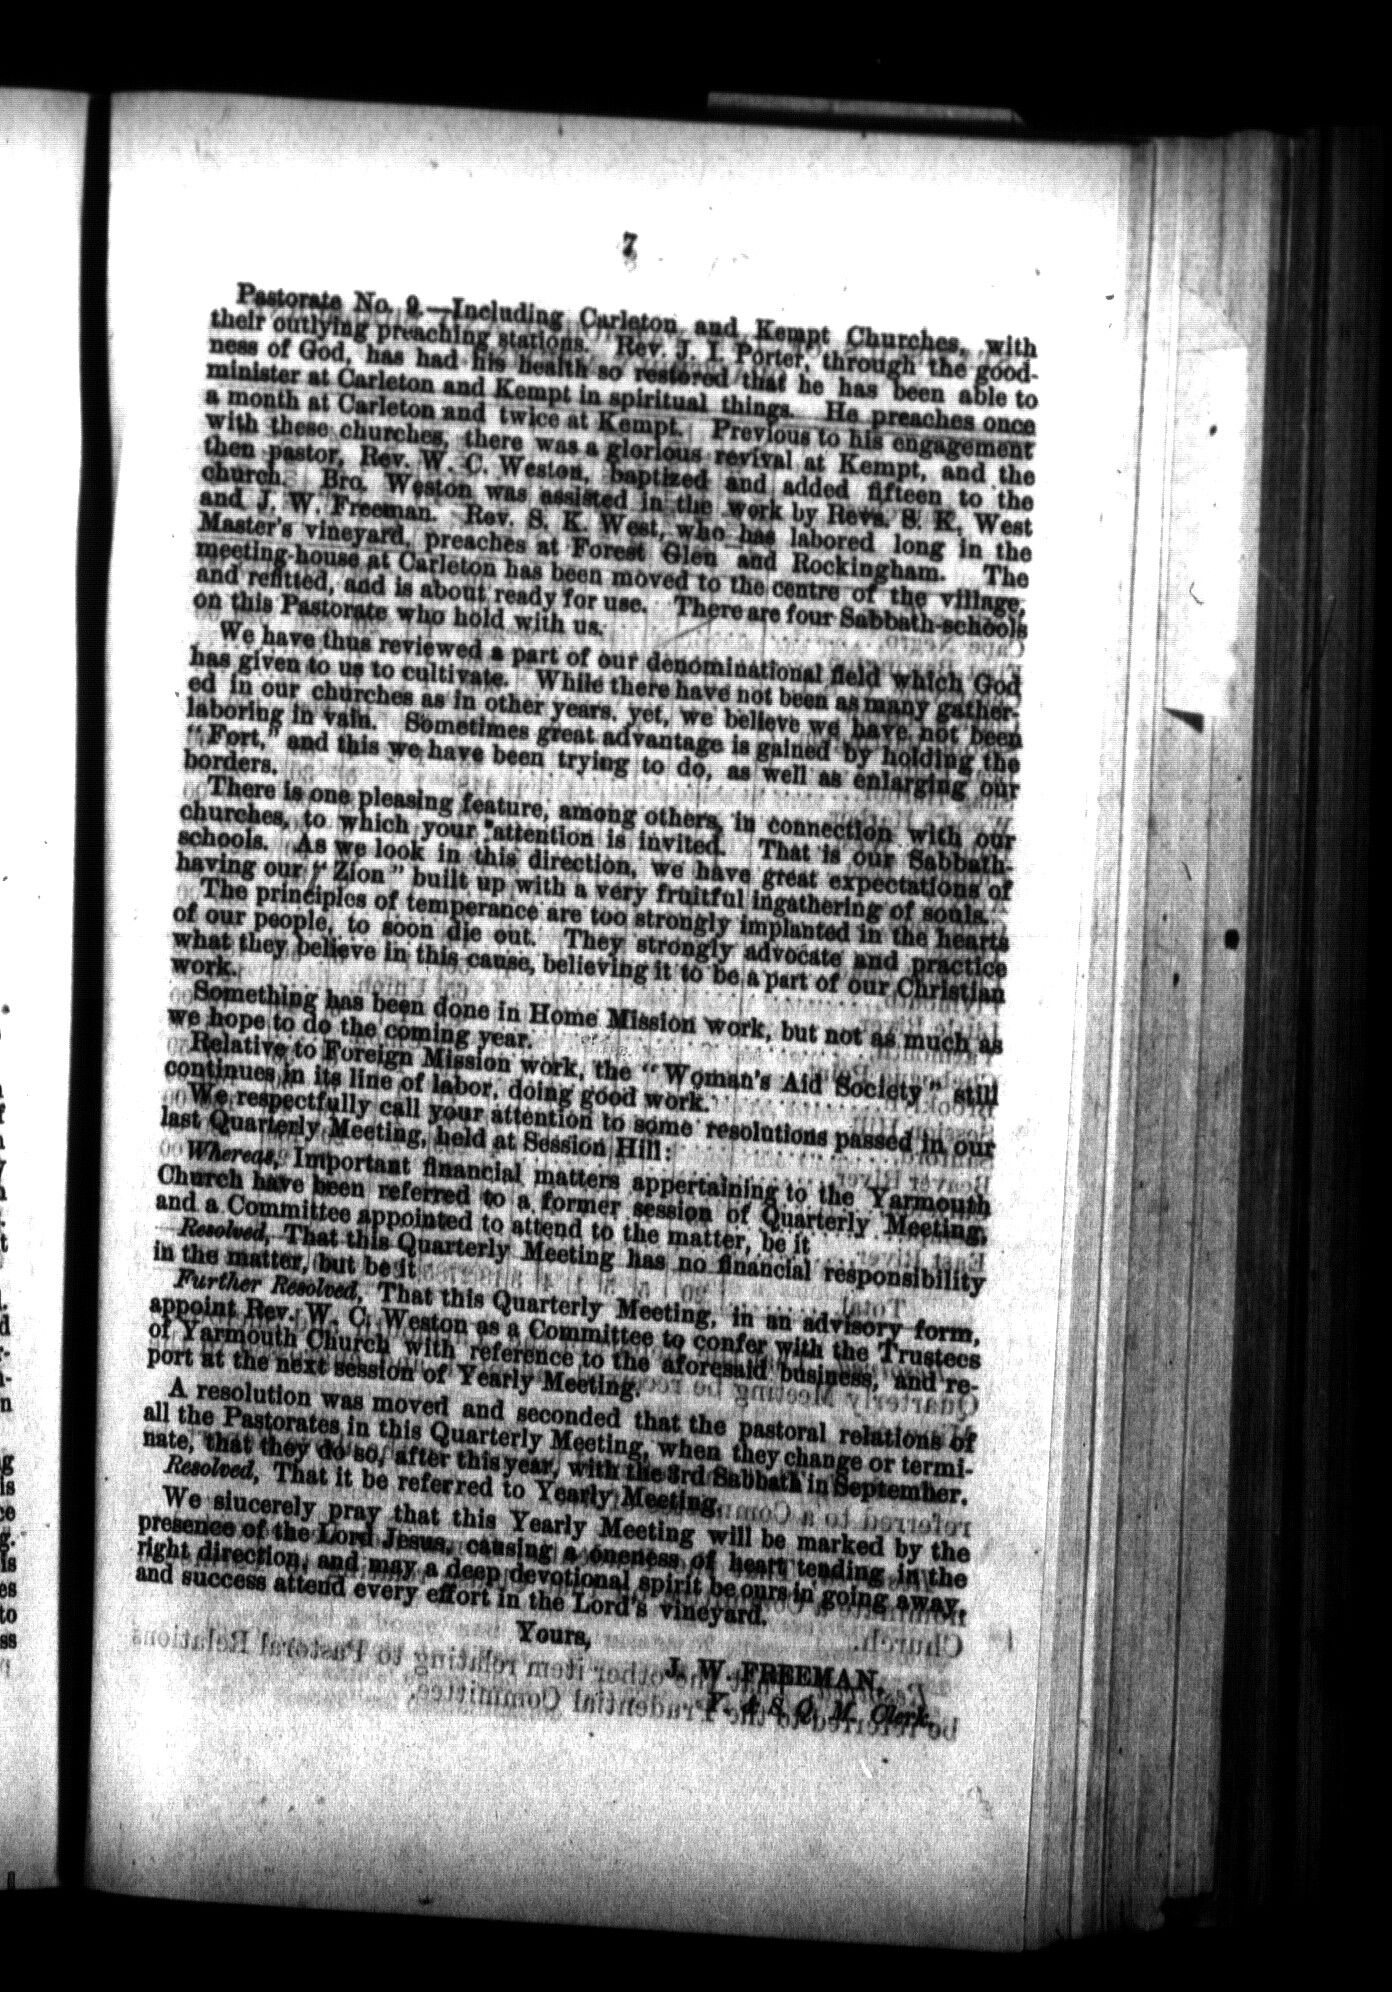 7
Pastorate No. 9.—Including Carleton and Kempt Churches, with
their outlying preaching stations. Rev. J. I. Porter, through the good-
ness of God, has had his health so restored that he has been able to
minister at Carleton and Kempt in spiritual things. He preaches once
a month at Carleton and twice at Kempt. Previous to his engagement
with these churches, there was a glorious revival at Kempt, and the
then pastor, Rev. W. C. Weston, baptized and added fifteen to the
church. Bro. Weston was assisted in the work by Revs. S. K. West
and J. W. Freeman. Rev. S. K. West, who has labored long in the
Master's vineyard, preaches at Forest Glen and Rockingham. The
meeting-house at Carleton has been moved to the centre of the village,
and refitted, and is about ready for use. There are four Sabbath-schools
on this Pastorate who hold with us.
We have thus reviewed a part of our denominational field which God
has given to us to cultivate. While there have not been as many gather-
ed in our churches as in other years, yet, we believe we have not been
laboring in vain. Sometimes great advantage is gained by holding the
"Fort," and this we have been trying to do, as well as enlarging our
borders.
There is one pleasing feature, among others, in connection with our
churches, to which your attention is invited. That is our Sabbath-
schools. As we look in this direction, we have great expectations of
having our "Zion" built up with a very fruitful ingathering of souls.
The principles of temperance are too strongly implanted in the hearts
of our people, to soon die out. They strongly advocate and practice
what they believe in this cause, believing it to be a part of our Christian
work.
Something has been done in Home Mission work, but not as much as
we hope to do the coming year.
Relative to Foreign Mission work, the "Woman's Aid Society" still
continues in its line of labor, doing good work.
We respectfully call your attention to some resolutions passed in our
last Quarterly Meeting, held at Session Hill:
Whereas, Important financial matters appertaining to the Yarmouth
Church have been referred to a former session of Quarterly Meeting,
and a Committee appointed to attend to the matter, be it
Resolved, That this Quarterly Meeting has no financial responsibility
in the matter, but be it
Further Resolved, That this Quarterly Meeting, in an advisory form,
appoint Rev. W. C. Weston as a Committee to confer with the Trustees
of Yarmouth Church with reference to the aforesaid business, and re-
port at the next session of Yearly Meeting.
A resolution was moved and seconded that the pastoral relations of
all the Pastorates in this Quarterly Meeting, when they change or termi-
nate, that they do so, after this year, with the 3rd Sabbath in September.
Resolved, That it be referred to Yearly Meeting.
We siucerely pray that this Yearly Meeting will be marked by the
presence of the Lord Jesus, causing a oneness of heart tending in the
right direction, and may a deep devotional spirit be ours in going away,
and success attend every effort in the Lord's vineyard.
Yours,
J. W. FREEMAN,
Y. & S. Q. M. Clerk.